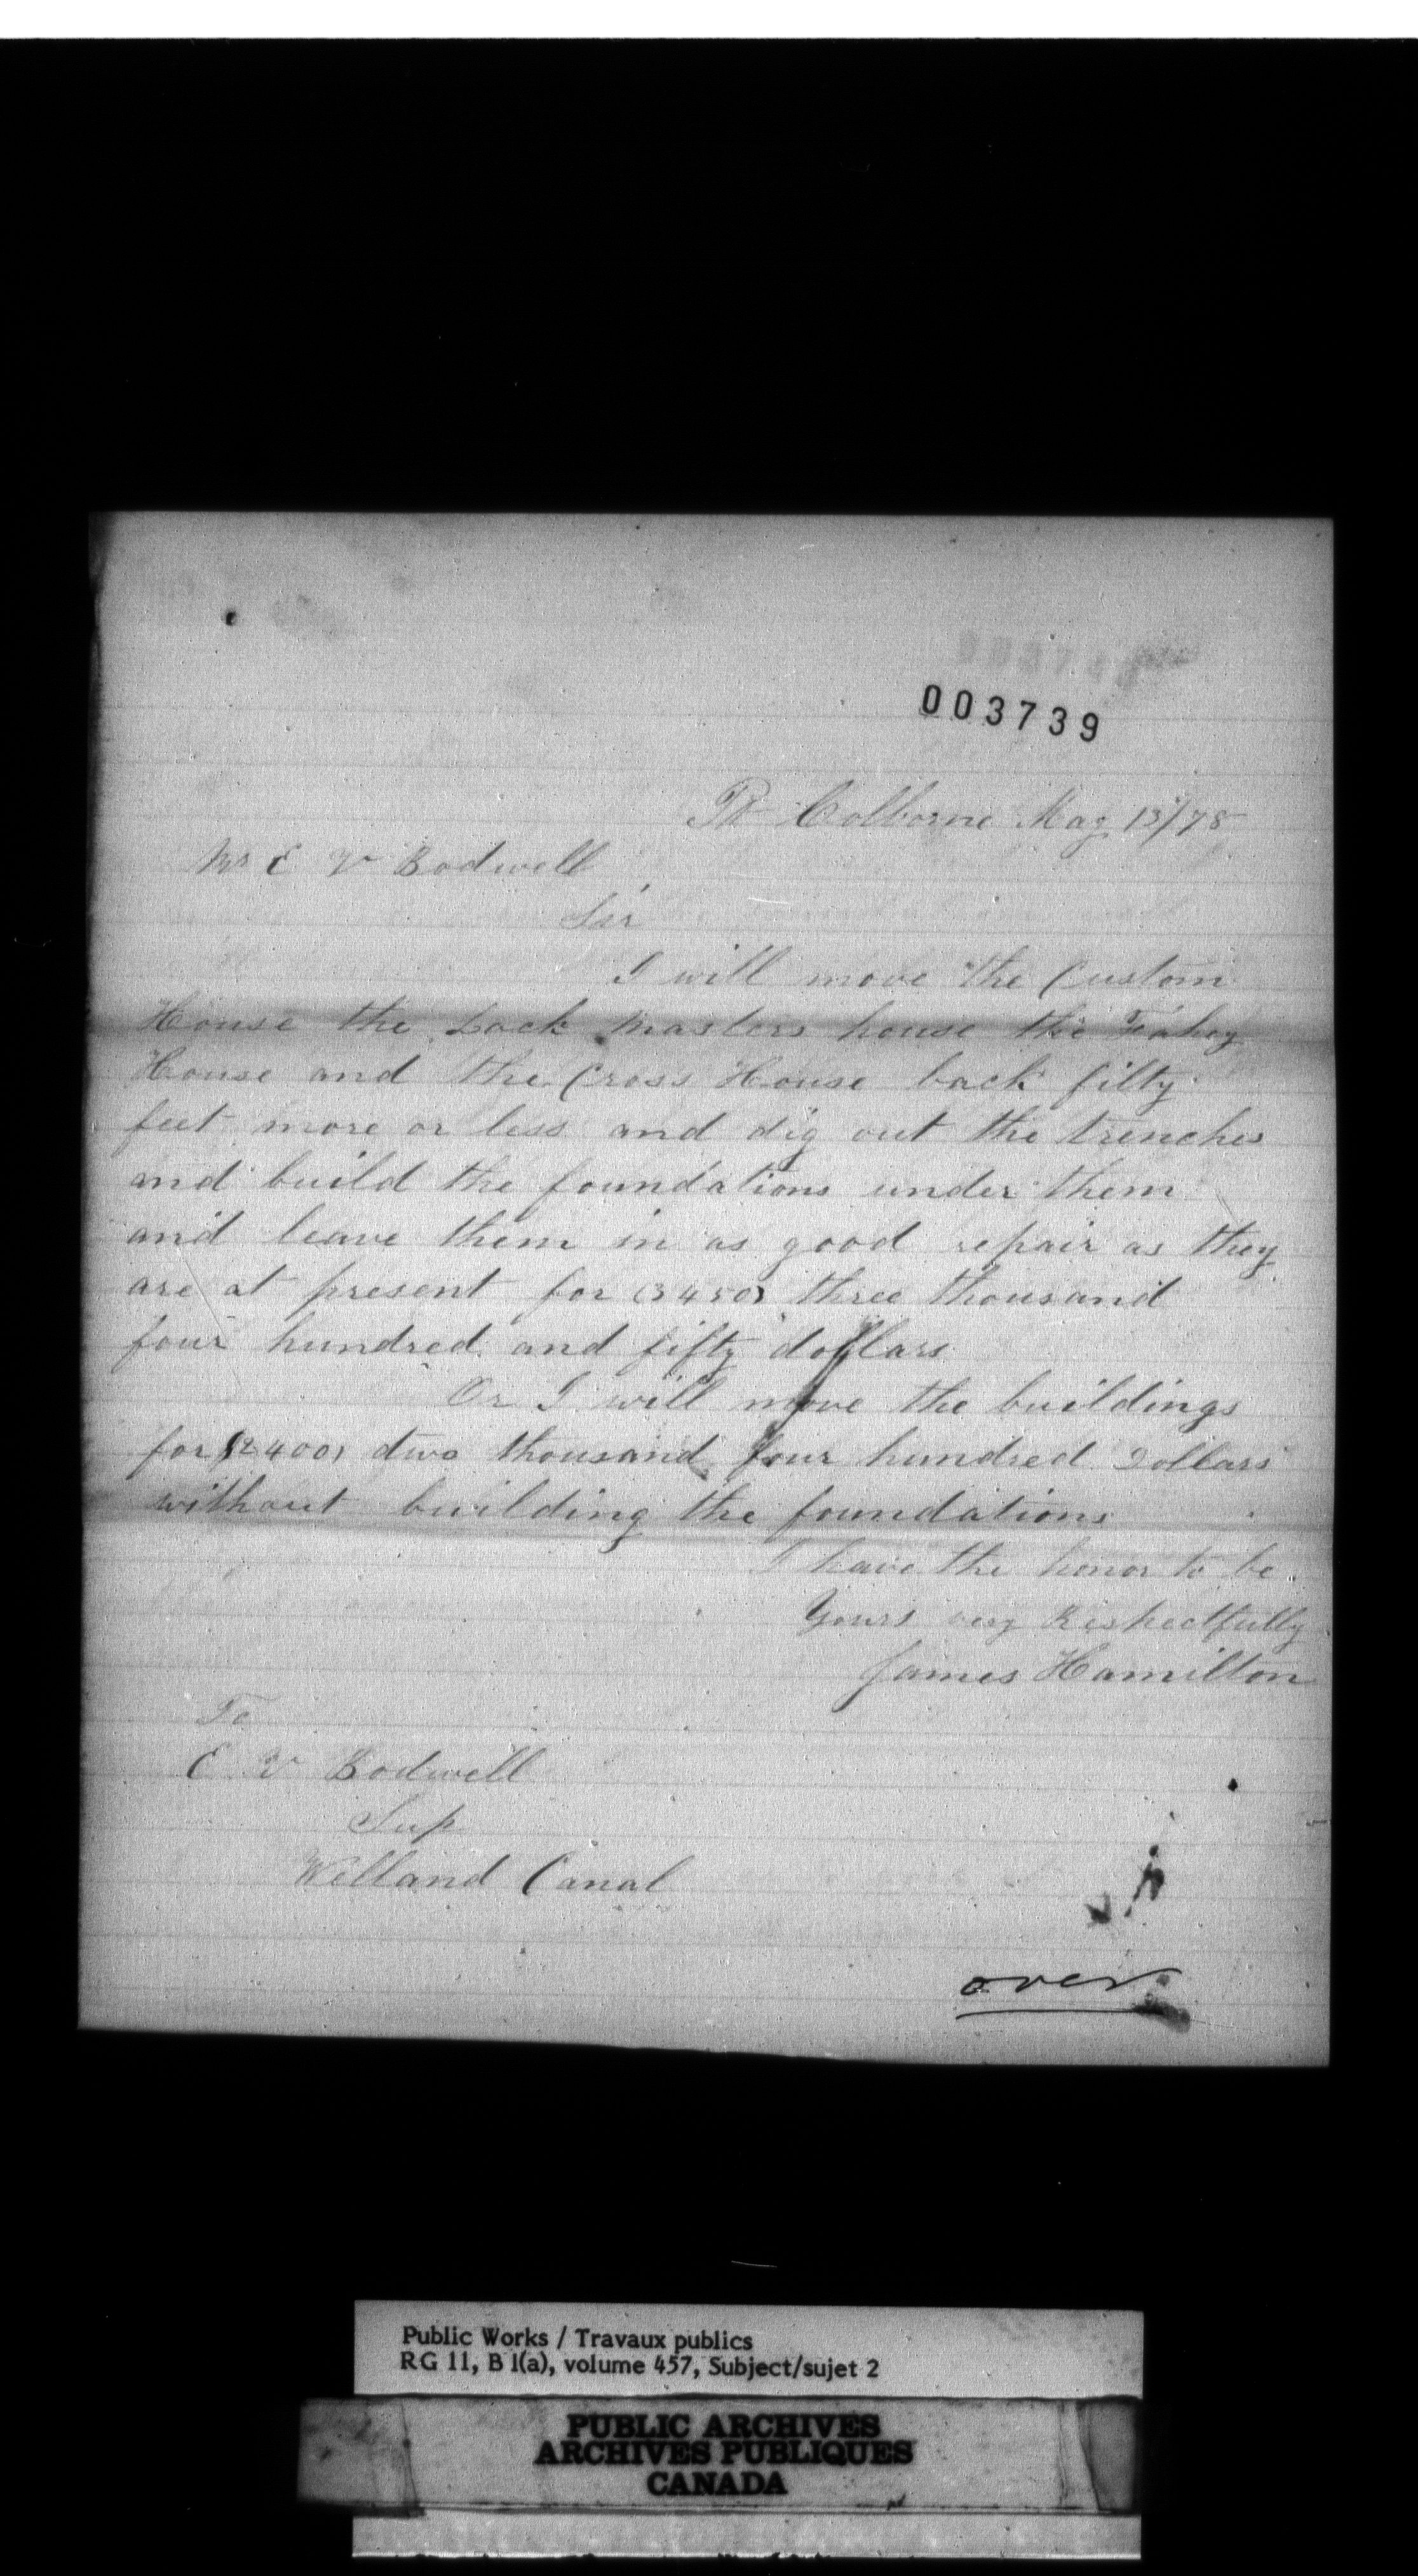 003739
Pt Colborne May 13/78
Mr E V Bodwell
Sir
I will move the Custom
House the Lock Masters house the Fahey
House and the Cross House back filty
feet more or less and dig out the trenches
and build the foundations under them
and leave them in as good repair as they
are at present for (3450) three thousand
four hundred and fifty dollars
Or I will move the buildings
for (2400) two thousand four hundred Dollars
without building the foundations
I have the honor to be
Yours very Respectfully
James Hamilton
To
E V Bodwell
Sup
Welland Canal
over
Public Works / Travaux publics
RG 11, B 1(a), volume 457, Subject/sujet 2
PUBLIC ARCHIVES
ARCHIVES PUBLIQUES
CANADA